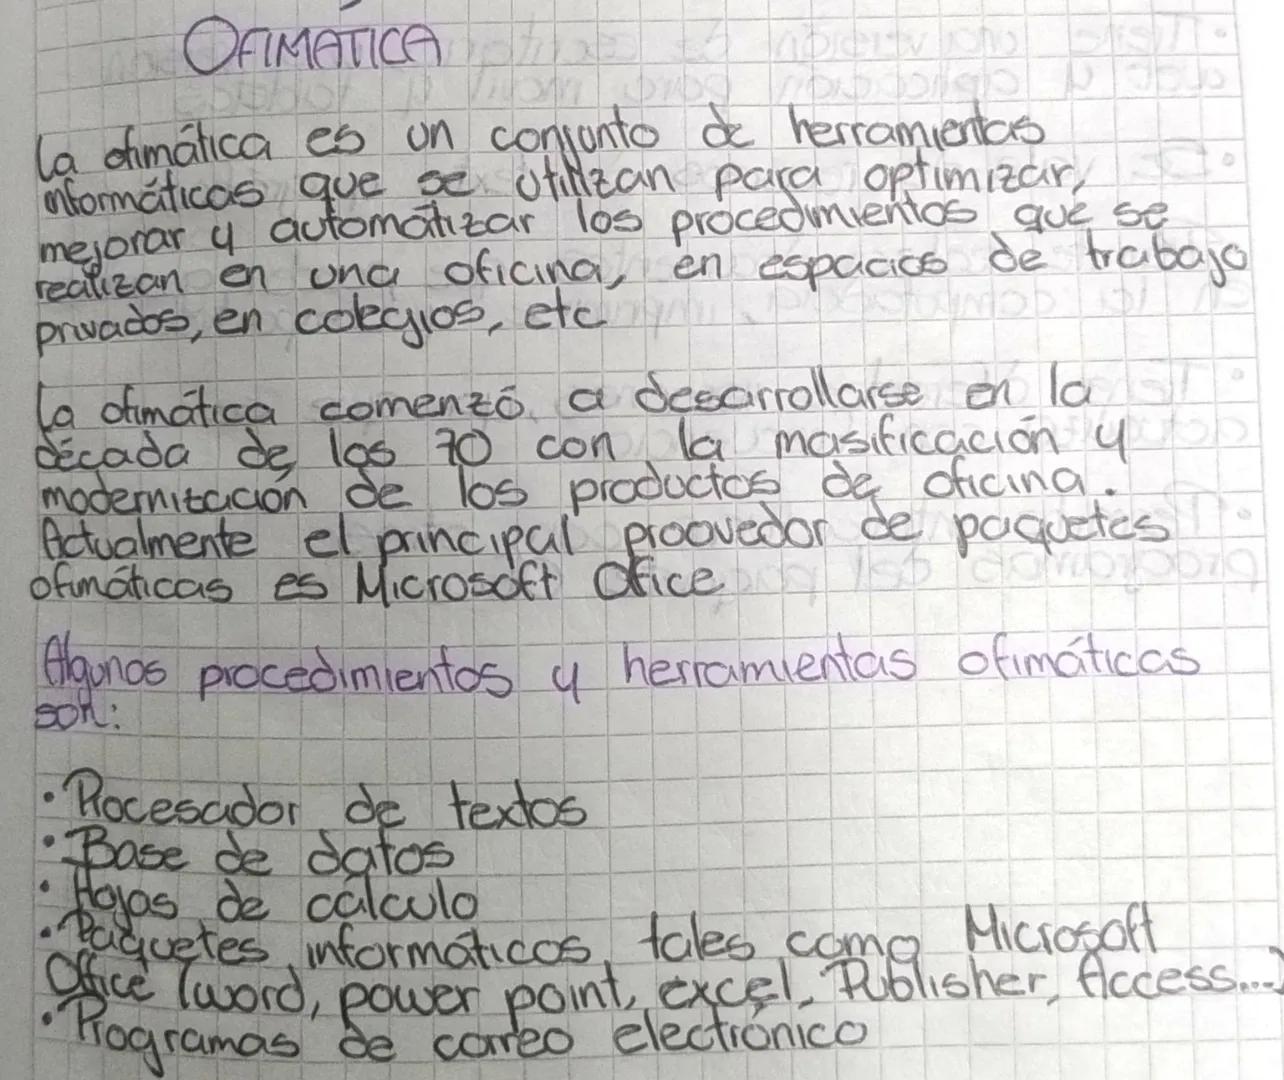 OFIMÁTICA
La ofimática es un conjunto de herramientas
informáticas que se utilizan para optimizar,
mejorar y automatizar los procedimientos que se
realizan en una oficina, en espacios de trabajo
privados, en colegios, etc
La ofimática comenzó a desarrollarse en la
década de los 70 con la masificación y
modernización de los productos de oficina.
Actualmente el principal proovedor de paquetes
ofimáticas es Microsoft Ofice
Algunos procedimientos y herramientas ofimáticas
son:
· Procesador de textos
· Base de datos
· Hojas de cálculo
· Paquetes informáticos, tales como Microsoft
Office (word, power point, excel, Publisher, Access...)
· Programas de correo electrónico